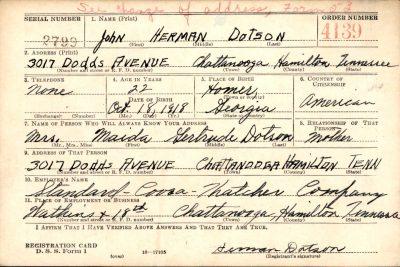 See change of address, Form 53
SERIAL NUMBER 1. NAME (Print) ORDER NUMBER
2793 John HERMAN DOTSON 4139
(First) (Middle) (Last)
2. ADDRESS (Print)
3017 Dodds AVENUE Chattanooga Hamilton Tennessee
(Number and street or R. F. D. number) (Town) (County) (State)
3. TELEPHONE 4. AGE IN YEARS 5. PLACE OF BIRTH 6. COUNTRY OF CITIZENSHIP
None 22 Homer
DATE OF BIRTH (Town or county)
Oct 18, 1918 Georgia American
(Exchange) (Number) (Mo.) (Day) (Yr.) (State or country)
7. NAME OF PERSON WHO WILL ALWAYS KNOW YOUR ADDRESS 8. RELATIONSHIP OF THAT PERSON
Mrs. Maida Gertrude Dotson Mother
(Mr., Mrs., Miss) (First) (Middle) (Last)
9. ADDRESS OF THAT PERSON
3017 DODDS AVENUE CHATTANOOGA HAMILTON TENN
(Number and street or R. F. D. number) (Town) (County) (State)
10. EMPLOYER'S NAME
Standard-Coosa-Thatcher Company
11. PLACE OF EMPLOYMENT OR BUSINESS
Watkins & 18th Chattanooga, Hamilton Tennessee
(Number and street or R. F. D. number) (Town) (County) (State)
I AFFIRM THAT I HAVE VERIFIED ABOVE ANSWERS AND THAT THEY ARE TRUE.
REGISTRATION CARD
D. S. S. Form 1 (over) 16—17105 Herman Dotson
(Registrant's signature)